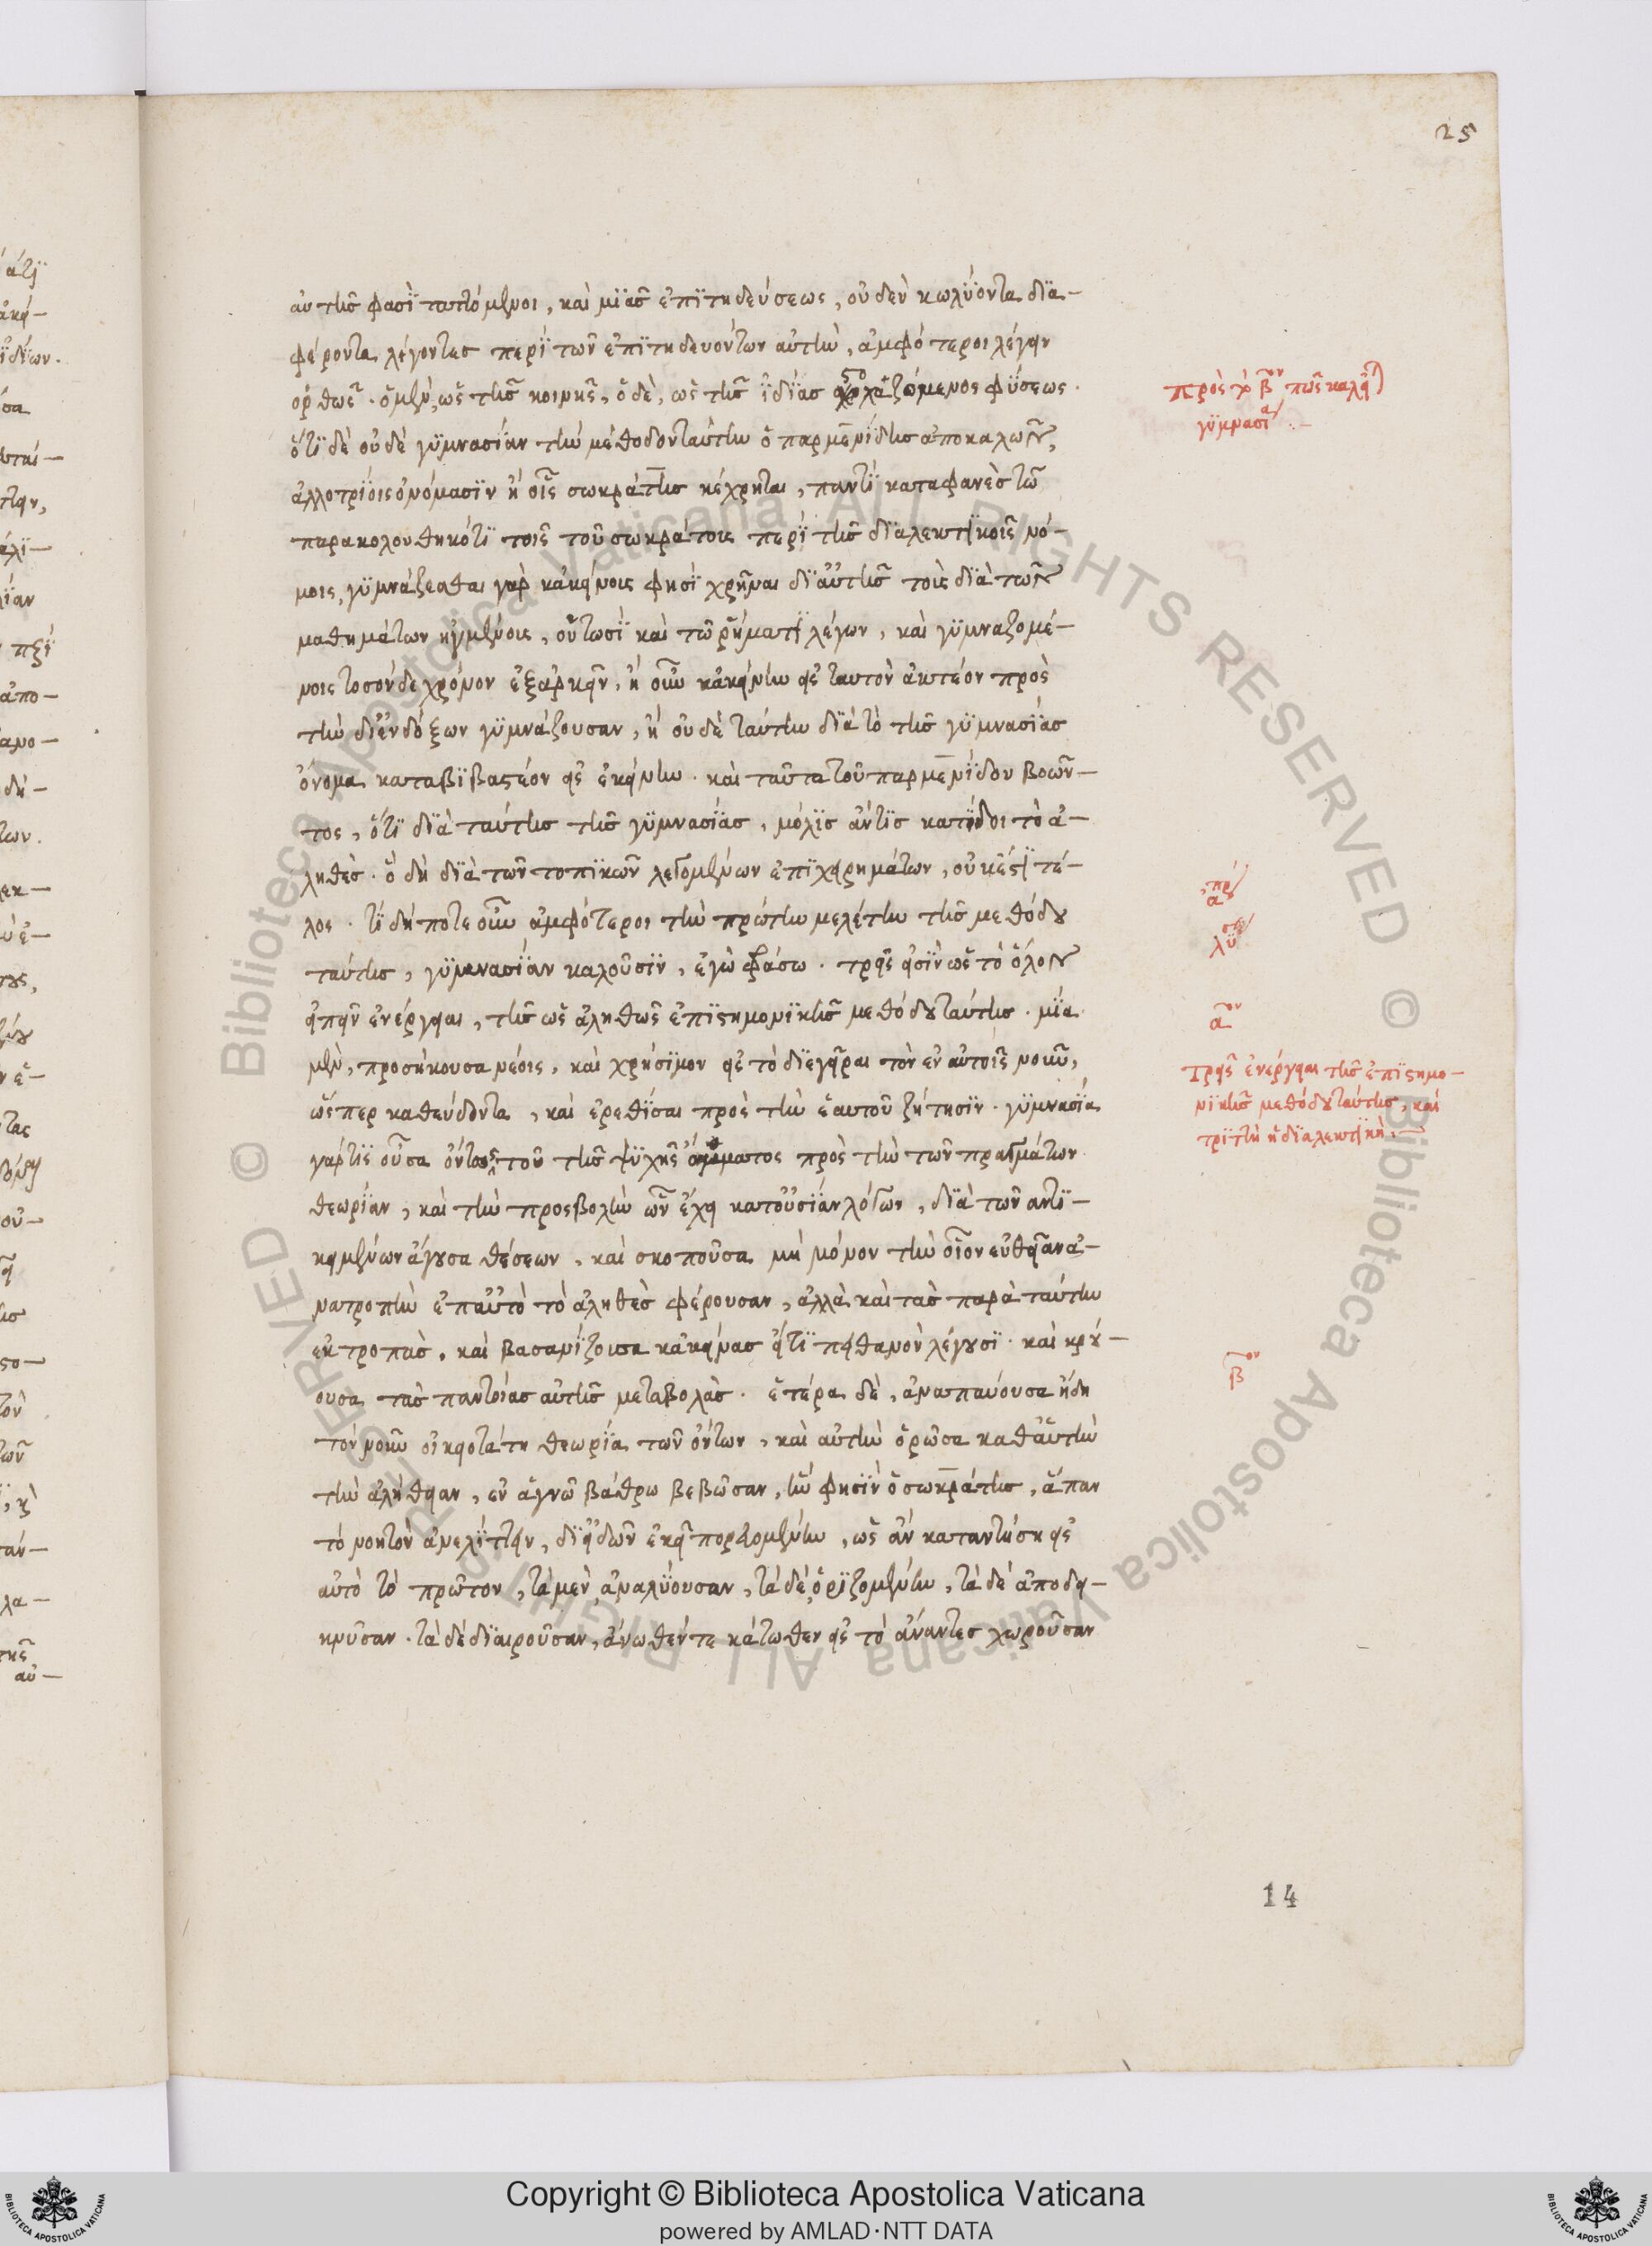 25
αὐτῆς φασὶ προϊστάμενοι, καὶ μιᾶς ἐπιτηδεύσεως, οὐδὲν κωλύοντα δια-
φέροντα λέγοντες περὶ τῶν ἐπιτηδευόντων αὐτὴν, ἀμφότεροι λέγειν
ὀρθῶς. ὁ μὲν, ὡς τῆς κοινῆς, ὁ δὲ, ὡς τῆς ἰδίας στοχαζόμενος φύσεως.
ὅτι δὲ οὐδὲ γυμνασίαν τὴν μέθοδον ταύτην ὁ παρμενίδης ἀποκαλῶν,
ἀλλοτρίοις ὀνόμασιν ἢ οἷς σωκράτης κέχρηται, παντὶ καταφανὲς τῷ
παρακολουθηκότι τοῖς τοῦ σωκράτους περὶ τῆς διαλεκτικοῖς νό-
μοις, γυμνάζεσθαι γὰρ κἀκείνοις φησὶ χρῆναι δι αὐτῆς τοὺς διὰ τῶν
μαθημάτων ἠγμένους, οὑτωσὶ καὶ τῷ ῥήματι λέγων, καὶ γυμναζομέ-
νοις τοσόνδε χρόνον ἐξαρκεῖν, ἢ οὖν κἀκείνην εἰς ταυτὸν ἀκτέον πρὸς
τὴν δι ἐνδόξων γυμνάζουσαν, ἢ οὐδὲ ταύτην διὰ τὸ τῆς γυμνασίας
ὄνομα καταβιβαστέον εἰς ἐκείνην. καὶ ταῦτα τοῦ παρμενίδου βοῶν-
τος, ὅτι διὰ ταύτης τῆς γυμνασίας, μόλις ἄν τις κατίδοι τὸ ἀ-
ληθὲς. ὃ δὴ διὰ τῶν τοπικῶν λεγομένων ἐπιχειρημάτων, οὐκ ἔστι τέ-
λος. τί δήποτε οὖν ἀμφότεροι τὴν πρώτην μελέτην τῆς μεθόδου
ταύτης, γυμνασίαν καλοῦσιν, ἐγὼ φράσω. τρεῖς εἰσὶν ὡς τὸ ὅλον
εἰπεῖν ἐνέργειαι, τῆς ὡς ἀληθῶς ἐπιστημονικῆς μεθόδου ταύτης. μία
μὲν, προσήκουσα νέοις, καὶ χρήσιμον εἰς τὸ διεγεῖραι τὸν ἐν αὐτοῖς νοῦν,
ὥσπερ καθεύδοντα, καὶ ἐρεθίσαι πρὸς τὴν ἑαυτοῦ ζήτησιν. γυμνασία
γάρ τις οὖσα ὄντως τοῦ τῆς ψυχῆς ὄμματος πρὸς τὴν τῶν πραγμάτων
θεωρίαν, καὶ τὴν προσβολὴν ὧν ἔχει κατ οὐσίαν λόγων, διὰ τῶν ἀντι-
κειμένων ἄγουσα θέσεων, καὶ σκοποῦσα μὴ μόνον τὴν οἷον εὐθεῖαν ἀ-
νατροπὴν ἐπ αὐτὸ τὸ ἀληθὲς φέρουσαν, ἀλλὰ καὶ τὰς παρὰ ταύτην
ἐκτροπὰς, καὶ βασανίζουσα κἀκείνας εἴ τι πειθανὸν λέγουσι. καὶ κρού-
ουσα τὰς παντοίας αὐτῆς μεταβολὰς. ἑτέρα δὲ, ἀναπαύουσα ἤδη
τὸν νοῦν οἰκειοτάτη θεωρία τῶν ὄντων, καὶ αὐτὴν ὁρῶσα καθ αὑτὴν
τὴν ἀλήθειαν, ἐν ἁγνῷ βάθρῳ βεβῶσαν, ἣν φησὶν ὁ σωκράτης, ἅπαν
τὸ νοητὸν ἀνελίττειν, δι εἰδῶν ἐκεῖ πορευομένην, ὡς ἂν καταντήσῃ εἰς
αὐτὸ τὸ πρῶτον, τὰ μὲν ἀναλύουσαν, τὰ δὲ ὁριζομένην, τὰ δὲ ἀποδει-
κνῦσαν. τὰ δὲ διαιροῦσαν, ἄνωθέν τε κάτωθεν εἰς τὸ ἄναντες χωροῦσαν
πρὸς τὸ β^ον πῶς καλεῖ
γυμνασία
ἀπορ
λύσ
α^ον
Τρεῖς ἐνέργειαι τῆς ἐπιστημο-
νικῆς μεθόδου ταύτης, καὶ
τριττὴ ἡ διαλεκτικὴ.
β^ον
14
© Biblioteca Apostolica Vaticana ALL RIGHTS RESERVED
Copyright © Biblioteca Apostolica Vaticana
powered by AMLAD·NTT DATA